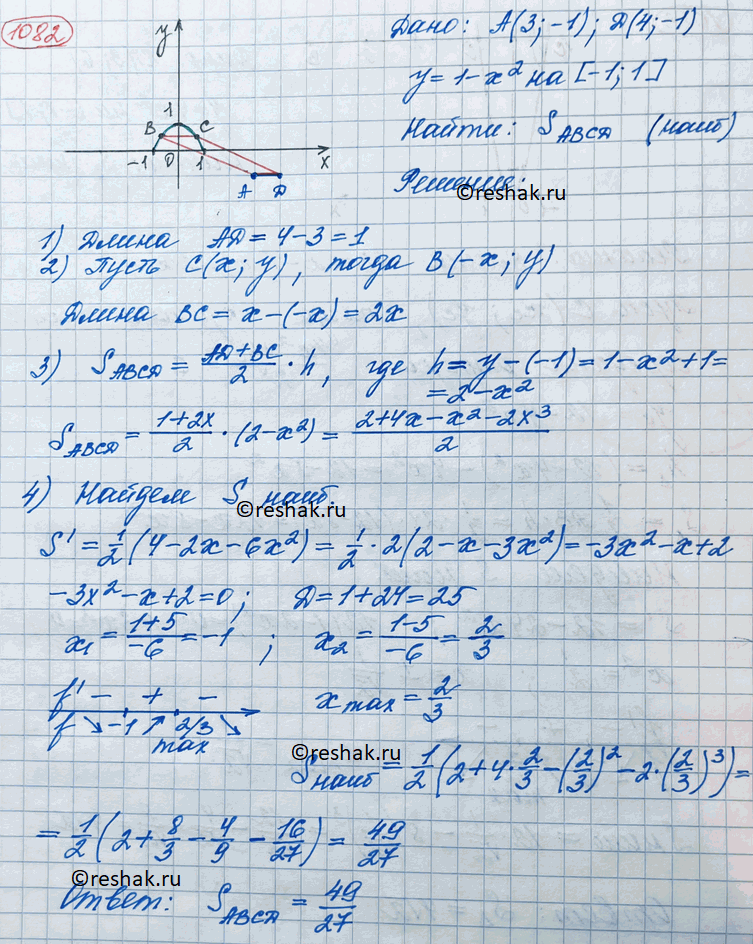 1082
y
Дано: A(3; -1); D(4; -1)
y = 1 - x² на [-1; 1]
Найти: S_ABCD (наиб)
Решение:
©reshak.ru
1
B C
-1 0 1 x
A D
1) Длина AD = 4 - 3 = 1
2) Пусть C(x; y), тогда B(-x; y)
Длина BC = x - (-x) = 2x
3) S_ABCD = (AD + BC)/2 · h, где h = y - (-1) = 1 - x² + 1 =
= 2 - x²
S_ABCD = (1 + 2x)/2 · (2 - x²) = (2 + 4x - x² - 2x³)/2
4) Найдем S наиб.
©reshak.ru
S' = 1/2 (4 - 2x - 6x²) = 1/2 · 2(2 - x - 3x²) = -3x² - x + 2
-3x² - x + 2 = 0; D = 1 + 24 = 25
x₁ = (1 + 5)/-6 = -1 ; x₂ = (1 - 5)/-6 = 2/3
f' - + -
f ↘ -1 ↗ 2/3 ↘
max
x max = 2/3
©reshak.ru
S наиб = 1/2 (2 + 4 · 2/3 - (2/3)² - 2 · (2/3)³) =
= 1/2 (2 + 8/3 - 4/9 - 16/27) = 49/27
©reshak.ru
Ответ: S_ABCD = 49/27